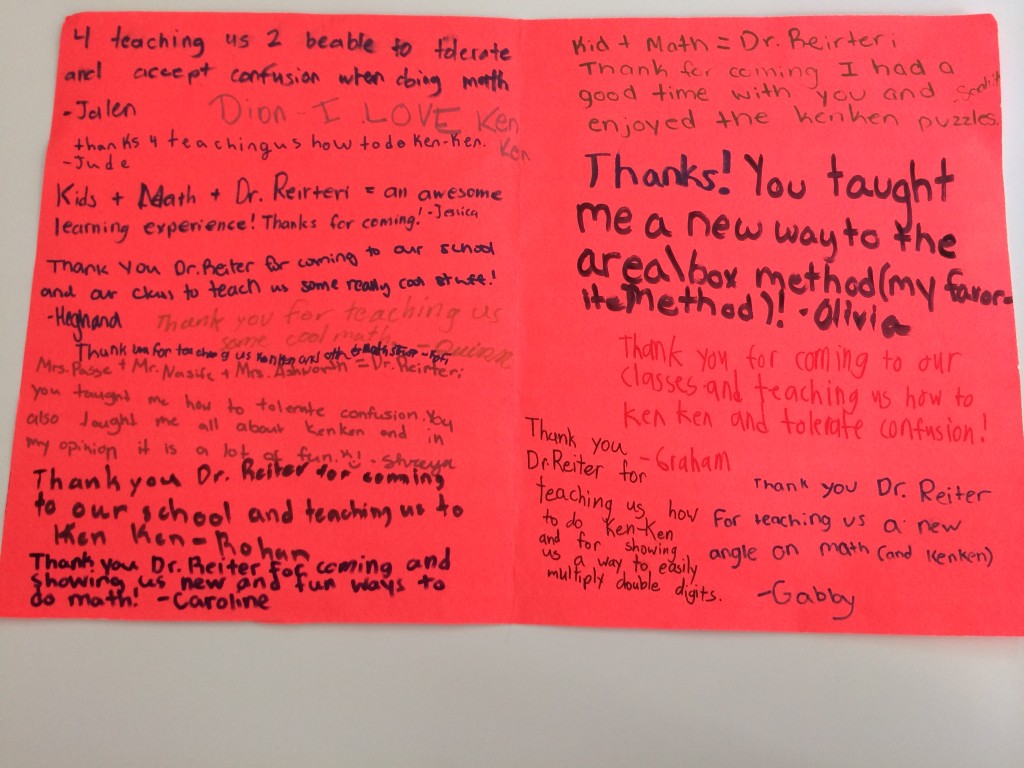 4 teaching us 2 beable to tolerate
and accept confusion when doing math
-Jalen
Dion - I LOVE Ken
Ken
thanks 4 teaching us how to do Ken-Ken.
-Jude
Kids + Math + Dr. Reirteri = an awesome
learning experience! Thanks for coming! -Jessica
Thank You Dr. Reiter for coming to our school
and our class to teach us some really cool stuff!
Thank you for teaching us
some cool math
-Quinn
Thank you for teaching us KenKen and
Mrs. Passe + Mr. Nasife + Mrs. Ashworth = Dr. Reirteri
you taught me how to tolerate confusion. You
also taught me all about kenken and in
my opinion it is a lot of fun. - Shreya
Thank you Dr. Reiter for coming
to our school and teaching us to
Ken Ken - Rohan
Thank you Dr. Reiter for coming and
showing us new and fun ways to
do math! -Caroline
Kid + Math = Dr. Reirteri
Thank for coming I had a
good time with you and
enjoyed the kenken puzzles.
Thanks! You taught
me a new way to the
area\box method (my favor-
ite Method)! - Olivia
Thank you for coming to our
classes and teaching us how to
ken ken and tolerate confusion!
-Graham
Thank you
Dr. Reiter for
teaching us how
to do Ken-Ken
and for showing
us a way to easily
multiply double digits.
Thank you Dr. Reiter
For teaching us a new
angle on math (and KenKen)
-Gabby